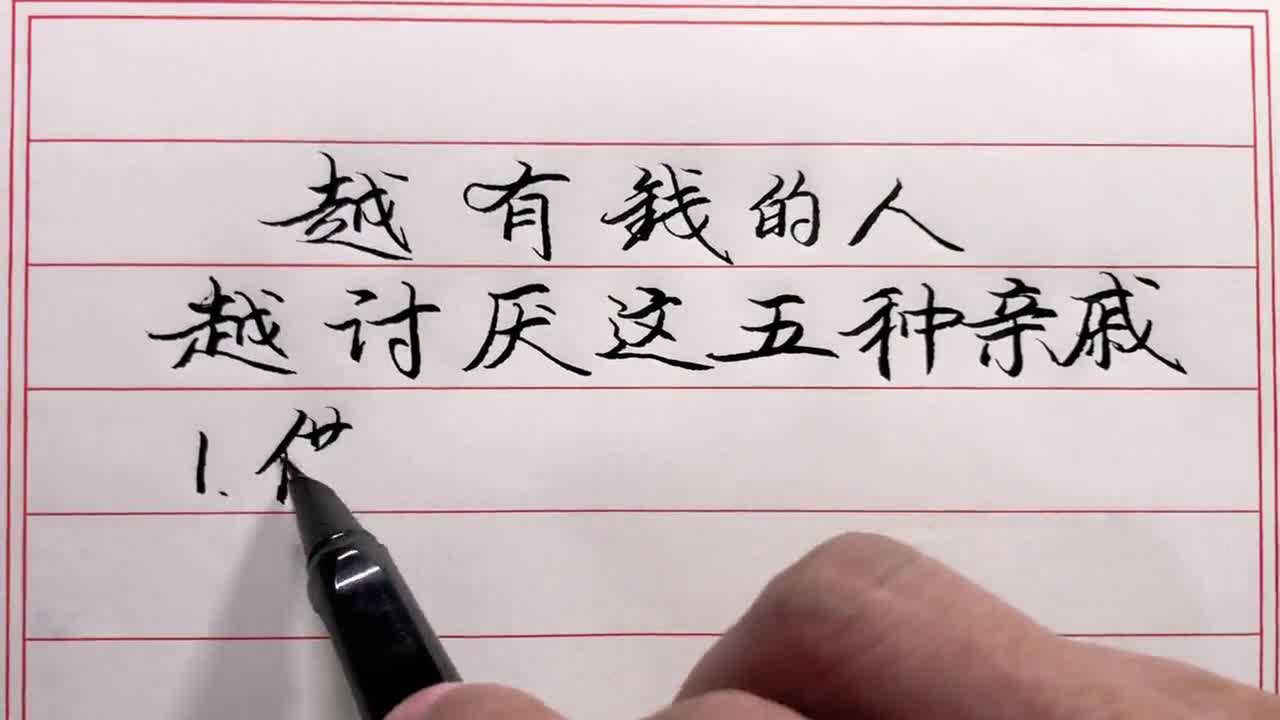 越有錢的人
越讨厌这五种亲戚
1.